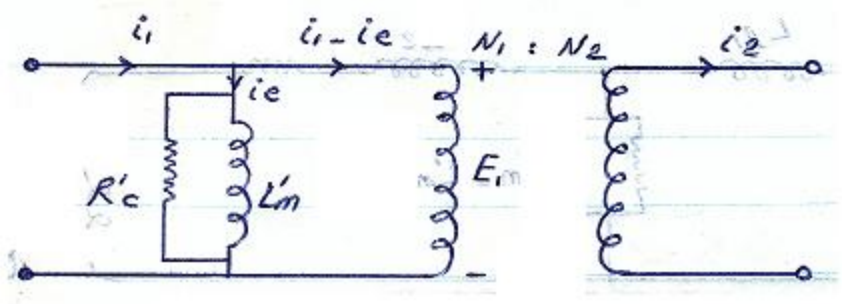 i1
i1-ie
N1 : N2
i2
+
ie
R'c
L'm
E1
-